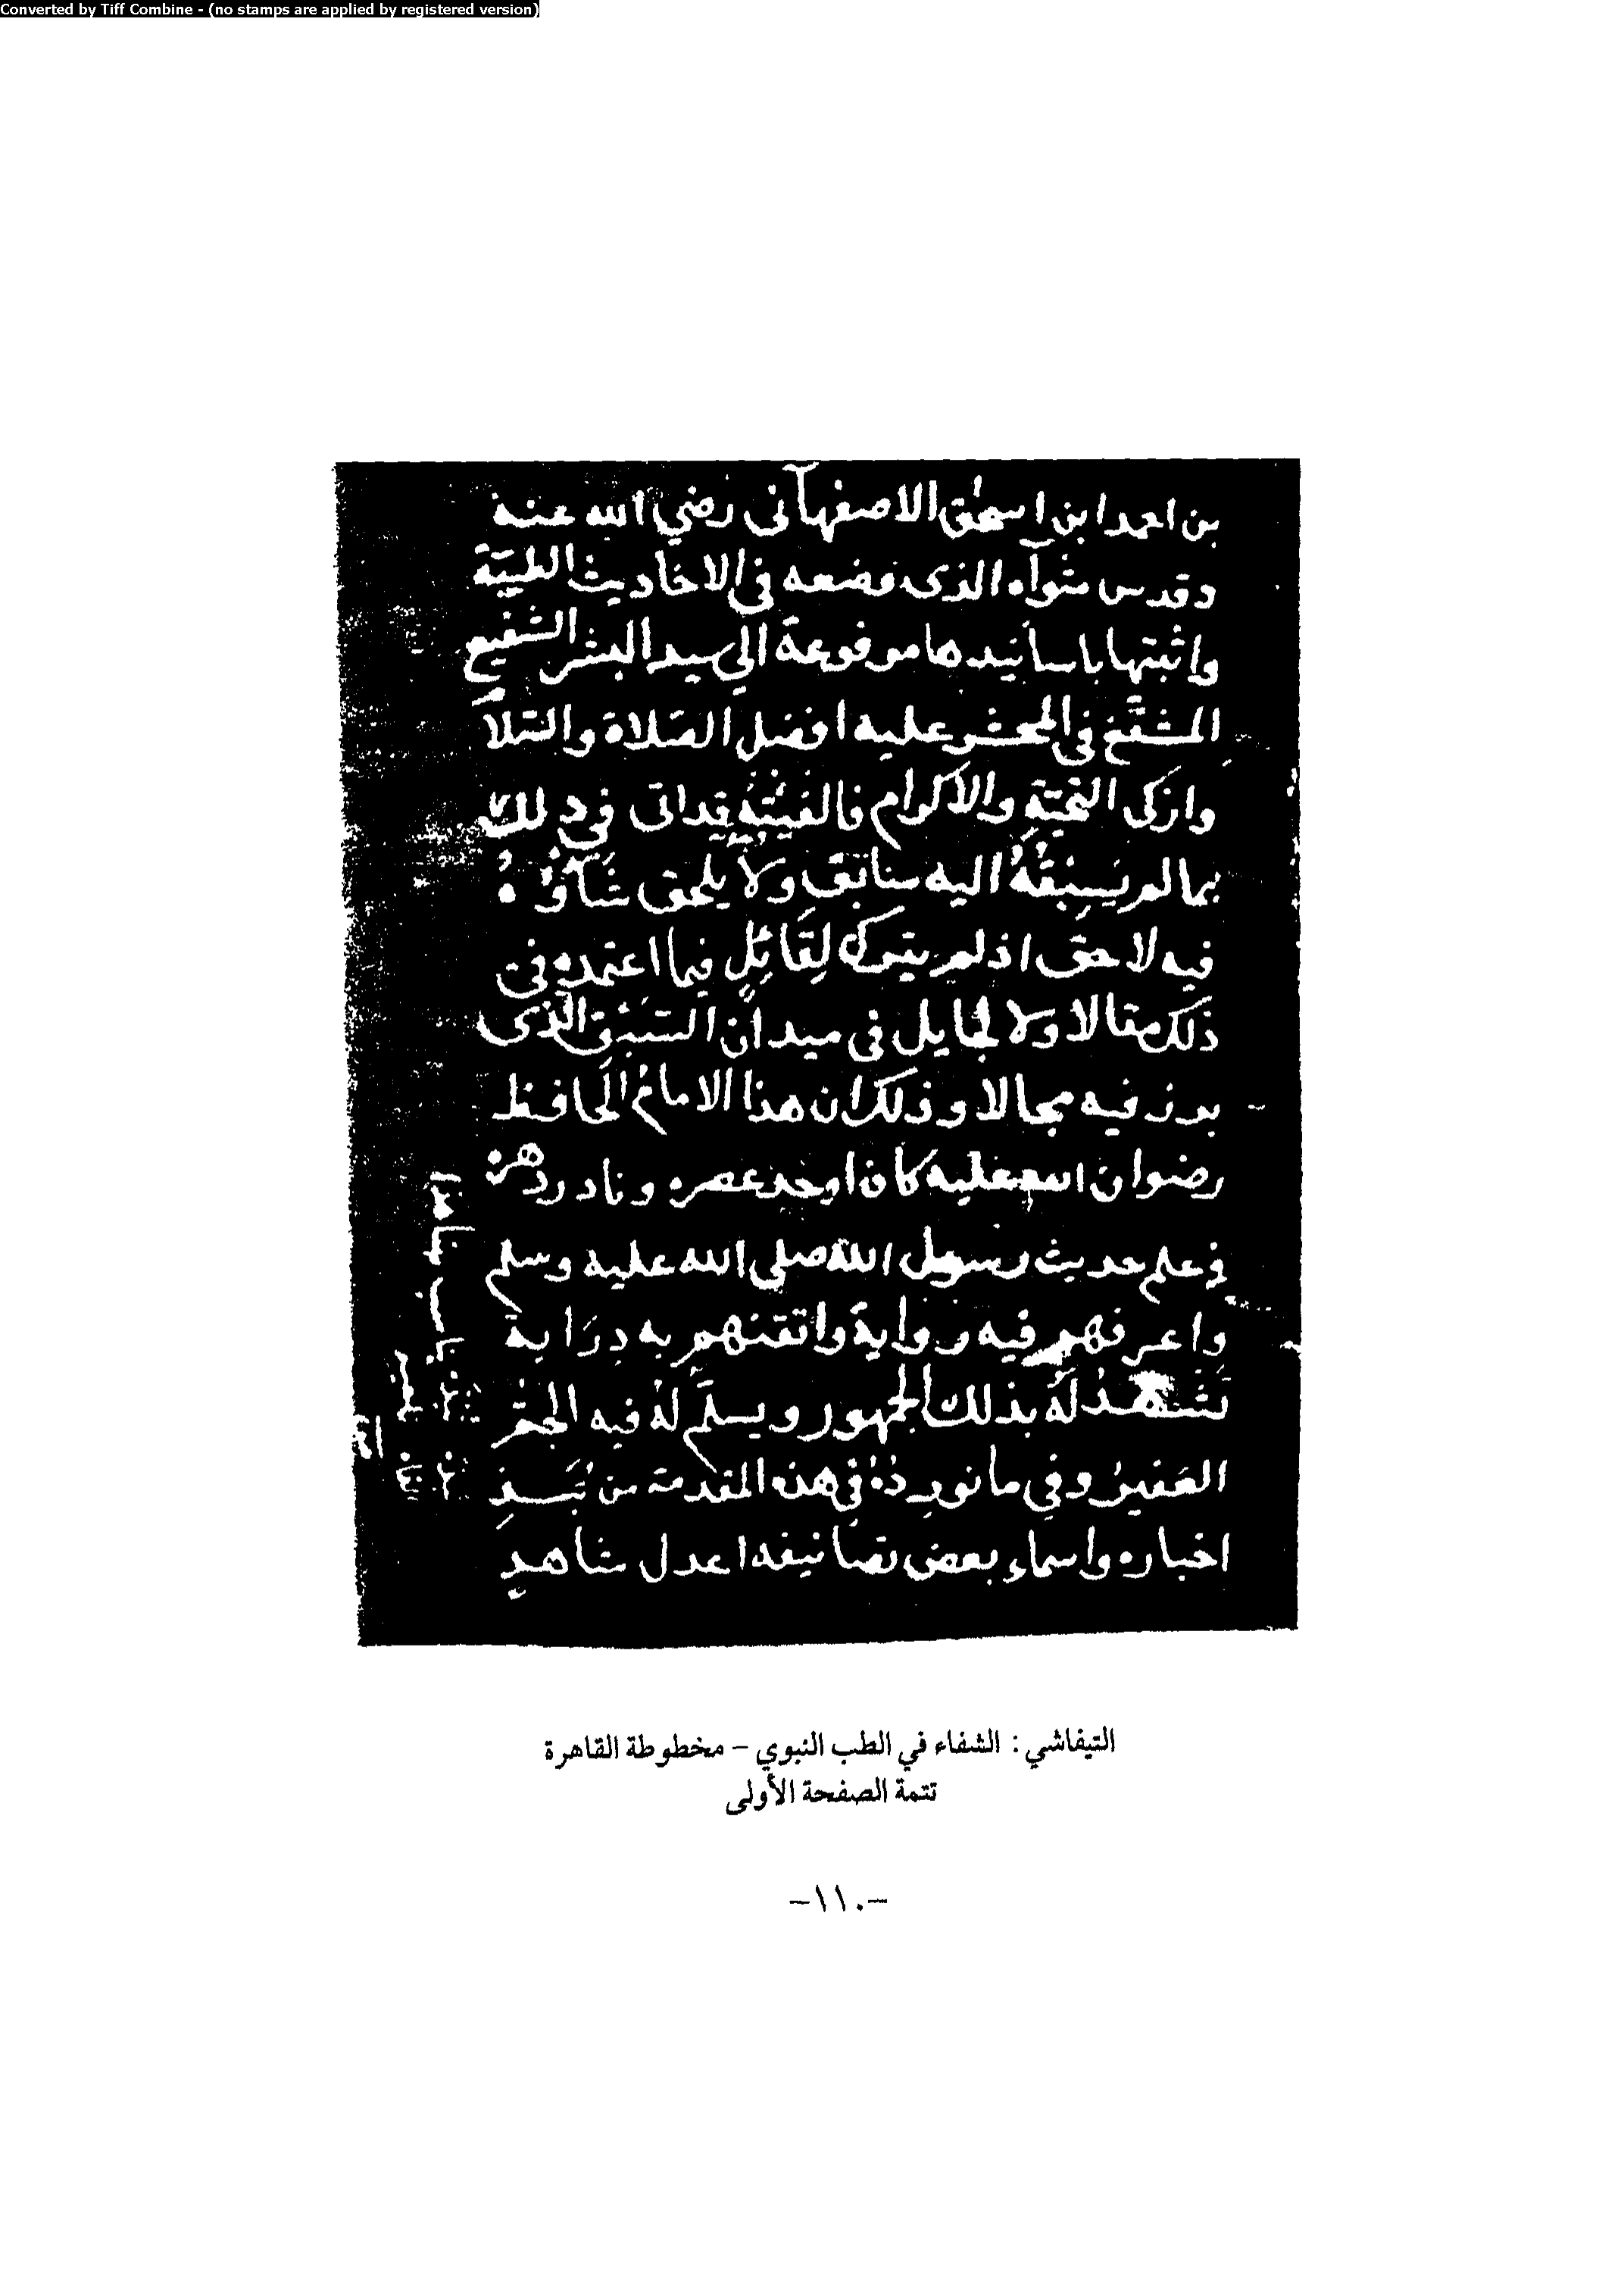 Converted by Tiff Combine - (no stamps are applied by registered version)
بن احمد ابن اسحق الاصفهاني رضي الله عنه
وقدس مثواه الذى وضعه في الاحاديث الطبيّة
واثبتها باسانيدها مرفوعة الى سيد البشر الشفيع
المشفّع فى المحشر عليه افضل الصّلاة والسّلام
وازكى التحيّة والاكرام فالفيته قد اتى في ذلك
بما لم يسبقه اليه سابق ولا يلحق شأوه
فيه لاحق اذ لم يترك لقائل فيما اعتمده فى
ذلك مقالا ولا لجايل فى ميدان السّبق الذى
برز فيه مجالا وذلك ان هذا الامام الحافظ
رضوان الله عليه كان اوحد عصره ونادر دهره
في علم حديث رسول الله صلى الله عليه وسلم
واعرفهم فيه رواية واتقنهم به دراية
تشهد له بذلك الجمهور ويسلّم له فيه الجمّ
الغفير وفي ما نورده في هذه المقدمة من نبذ
اخباره واسماء بعض تصانيفه اعدل شاهد
التيفاشي : الشفاء في الطب النبوي – مخطوطة القاهرة
تتمة الصفحة الأولى
-١١٠-